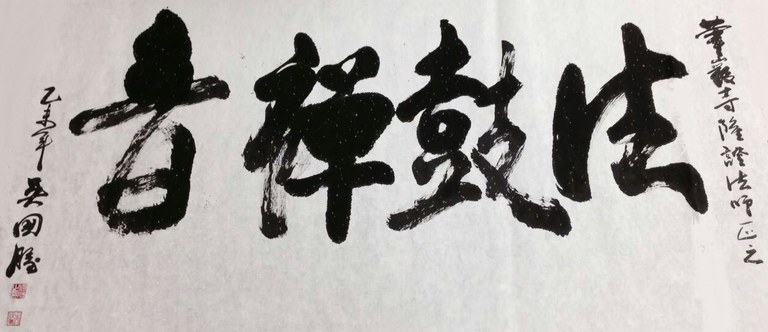 華嚴寺隆證法師正之
法鼓禪音
乙未年
吳國勝